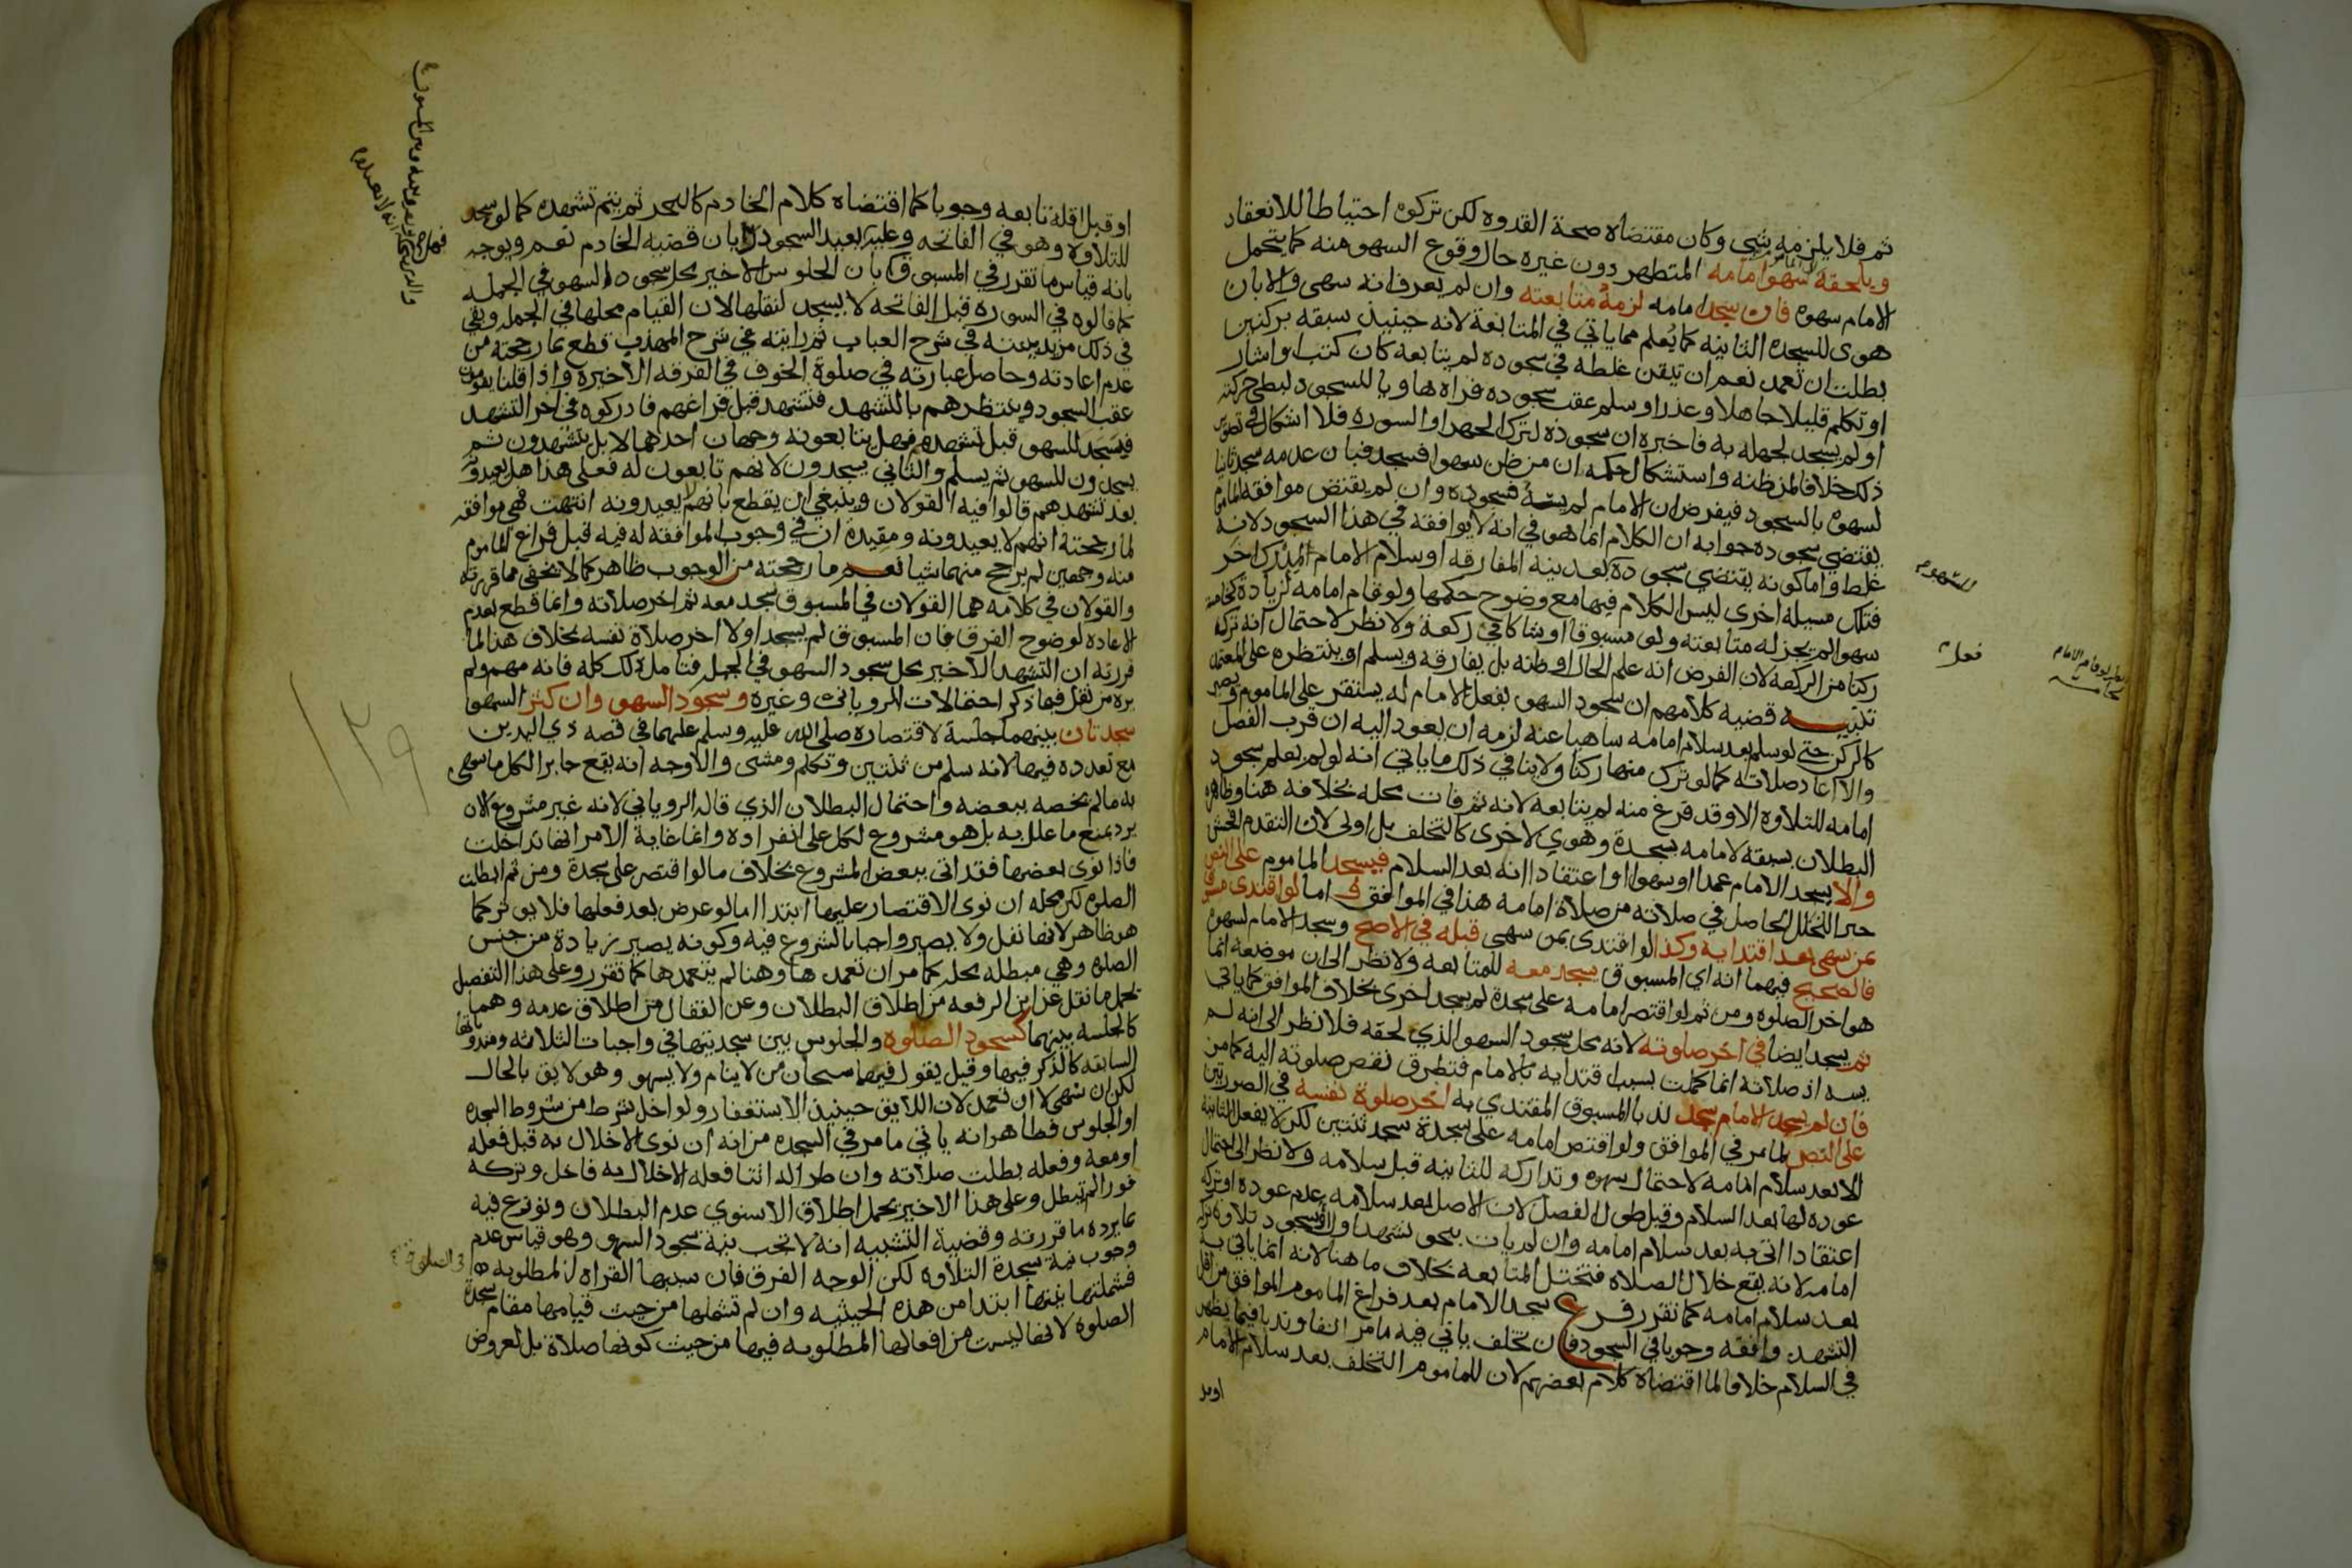 ثم فلا يلزمه شي وكان مقتضاه صحة القدوه لكن تركوه احتياطا للانعقاد
ويلحقه سهو امامه المتطهر دون غيره حال وقوع السهو منه كما يتحمل
الامام سهوه فان سجد امامه لزمه متابعته وان لم يعرف انه سهى والا بان
هوى للسجده الثانيه كما يُعلم مما ياتي في المتابعة لانه حينيذ سبقه بركنين
بطلت ان تعمد نعم ان تيقن غلطه في سجوده لم يتابعه كان كتب او اشار
او تكلم قليلا جاهلا وعذر او سلم عقب سجوده فراه هاويا للسجود لبطي حركته
او لم يسجد لجهله به فاخبره ان سجوده لترك الجهر او السوره فلا اشكال في تصوير
ذلك خلافا لمن ظنه واستشكال حكمه ان من ظن سهوا فسجد فبان عدمه سجد ثانيا
لسهوه بالسجود فيفرض ان الامام لم يسه فسجوده وان لم يقتض موافقه الماموم
يقتضي سجوده جوابه ان الكلام انما هو في انه لا يوافقه في هذا السجود لانه
غلط واما كونه يقتضي سجوده بعد نيه المفارقه او سلام الامام لمدرك اخر
فتلك مسيله اخرى ليس الكلام فيها مع وضوح حكمها ولو قام امامه لزيادة كخامسة
سهوا لم يجز له متابعته ولو مسبوقا او شاكا في ركعة ولا نظر لاحتمال انه ترك
ركنا من الركعه لان الفرض انه علم الحال او ظنه بل يفارقه ويسلم او ينتظره على المعتمد
تنبيـــه قضيه كلامهم ان سجود السهو بفعل الامام له يستقر على الماموم ويصير
كالركن حتى لو سلم بعد سلام امامه ساهيا عنه لزمه ان يعود اليه ان قرب الفصل
والا اعاد صلاته كما لو ترك منها ركنا ولا ينافي ذلك ما ياتي انه لو لم يعلم بسجود
امامه للتلاوه الا وقد فرغ منه لم يتابعه لانه ثم فات محله بخلافه هنا وظاهره
البطلان بسبقه لامامه بسجدة وهوي لاخرى كالتخلف بل اولى لان التقدم افحش
والا يسجد الامام عمدا او سهوا او اعتقادا انه بعد السلام فيسجد الماموم على النص
جبر الخلل الحاصل في صلاته من صلاة امامه هذا في الموافق اما لو اقتدى مسبوق
بمن سهى بعد اقتدايه وكذا لو اقتدى بمن سهى قبله في الاصح وسجد الامام لسهوه
فالصحيح فيهما انه اي المسبوق يسجد معه للمتابعه ولا نظر الى ان موضعه انما
هو اخر الصلوه ومن ثم لو اقتصر امامه على سجدة لم يسجد اخرى بخلاف الموافق كما ياتي
ثم يسجد ايضا في اخر صلوته لانه محل سجود السهو الذي لحقه فلا نظر الى انه لم
يسه اذ صلاته انما كملت بسبب اقتدايه بالامام فتطرق نقص صلوته اليه كما من
فان لم يسجد الامام سجد ندبا المسبوق المقتدي به اخر صلوة نفسه في الصورتين
على النص لما مر في الموافق ولو اقتصر امامه على سجدة سجد ثنتين لكن لا يفعل الثانية
الا بعد سلام امامه لاحتمال سهوه وتداركه للثانيه قبل سلامه ولا نظر الى احتمال
عوده لها بعد السلام وقبل طول الفصل لان الاصل بعد سلامه عدم عوده او تركه
اعتقادا اتى به بعد سلام امامه وان لم يات بنحو تشهد اول او سجود تلاوة ترك
امامه لانه يقع خلال الصلاه فتختل المتابعه بخلاف ما هنا لانه انما ياتي به
بعد سلام امامه كما تقرر فرع سجد الامام بعد فراغ الماموم الموافق من اقل
التشهد وافقه وجوبا في السجود فان تخلف ياتي فيه ما مر انفا وندبا فيما يظهر
في السلام خلافا لما اقتضاه كلام بعضهم لان للماموم التخلف بعد سلام الامام
للسهو
فعل
لو قام الامام
لخامسه
او قبل اقله تابعه وجوبا كما اقتضاه كلام الخادم كالبحر ثم يتم تشهده كما لو سجد
للتلاوه وهو في الفاتحه وعليه يعيد السجود رايان قضيه الخادم نعم ويوجه
بانه قياس ما تقرر في المسبوق بان الجلوس الاخير محل سجود السهو في الجمله
كما قالوه في السوره قبل الفاتحه لا يسجد لنقلها لان القيام محلها في الجمله وبقي
في ذلك مزيد بينته في شرح العباب ثم رايته في شرح المهذب قطع بما رجحته من
عدم اعادته وحاصل عبارته في صلوة الخوف في الفرقه الاخيره واذا قلنا يقومون
عقب السجود وينتظرهم بالتشهد فتشهد قبل فراغهم فادركوه في اخر التشهد
فيسجد للسهو قبل تشهدهم فهل يتابعونه وجهان احدهما لا بل يتشهدون ثم
يسجدون للسهو ثم يسلم والثاني يسجدون لانهم تابعون له فعلى هذا هل يعيدونه
بعد تشهدهم قالوا فيه القولان وينبغي ان يقطع بانهم لا يعيدونه انتهت فهي موافقه
لما رجحته انهم لا يعيدونه ومقيدة ان في وجوب الموافقه له فيه قبل فراغ الماموم
منه وجهين لم يرجح منهما شيا نعم ما رجحته من الوجوب ظاهر كما لا يخفى مما قررته
والقولان في كلامه هما القولان في المسبوق سجد معه ثم اخر صلاته وانما قطع بعدم
الاعاده لوضوح الفرق فان المسبوق لم يسجد اولا اخر صلاة نفسه بخلاف هذا لما
قررته ان التشهد الاخير محل سجود السهو في الجمله فتامل ذلك كله فانه مهم ولم
يره من نقل فيها ذكر احتمالات الروياني وغيره وسجود السهو وان كثر السهو
سجدتان بينهما جلسة لاقتصاره صلى الله عليه وسلم عليهما في قصه ذي اليدين
مع تعدده فيها لانه سلم من ثنتين وتكلم ومشى والاوجه انه يقع جابرا لكل ما سهى
به ما لم يخصه ببعضه واحتمال البطلان الذي قاله الروياني لانه غير مشروع الان
يرد بمنع ما علل به بل هو مشروع لكل على انفراده وانما غاية الامر انها تداخلت
فاذا نوى بعضها فقد اتى ببعض المشروع بخلاف ما لو اقتصر على سجدة ومن ثم ابطلت
الصلوه لكن محله ان نوى الاقتصار عليها ابتدا اما لو عرض بعد فعلها فلا يوثر كما
هو ظاهر لانها نفل ولا يصير واجبا بالشروع فيه وكونه يصير زيادة من جنس
الصلوه وهي مبطله محله كما مر ان تعمدها وهنا لم يتعمدها كما تقرر وعلى هذا التفصيل
يحمل ما نقل عن ابن الرفعه من اطلاق البطلان وعن القفال من اطلاق عدمه وهما
كالجلسه بينهما كسجود الصلوه والجلوس بين سجدتيها في واجبات الثلاثه ومندوباتها
السابقه كالذكر فيها وقيل يقول فيهما سبحان من لا ينام ولا يسهو وهو لايق بالحال
لكن ان سهى لا ان تعمد لان اللايق حينيذ الاستغفار ولو اخل بشرط من شروط السجده
او الجلوس فظاهر انه ياتي ما مر في السجده من انه ان نوى الاخلال به قبل فعله
او معه وفعله بطلت صلاته وان طرا له اثنا فعله الاخلال به فاخل وتركه
فورا لم تبطل وعلى هذا الاخير يحمل اطلاق الاسنوي عدم البطلان ونوزع فيه
بما يرده ما قررته وقضية التشبيه انه لا تجب نية سجود السهو وهو قياس عدم
وجوب نية سجدة التلاوه لكن الوجه الفرق فان سببها القراه المطلوبه
فشملتها نيتها ابتدا من هذه الحيثيه وان لم تشملها من حيث قيامها مقام سجدة
الصلوه لانها ليست من افعالها المطلوبه فيها من حيث كونها صلاة بل لعروض
في الصلوه
١٣٩